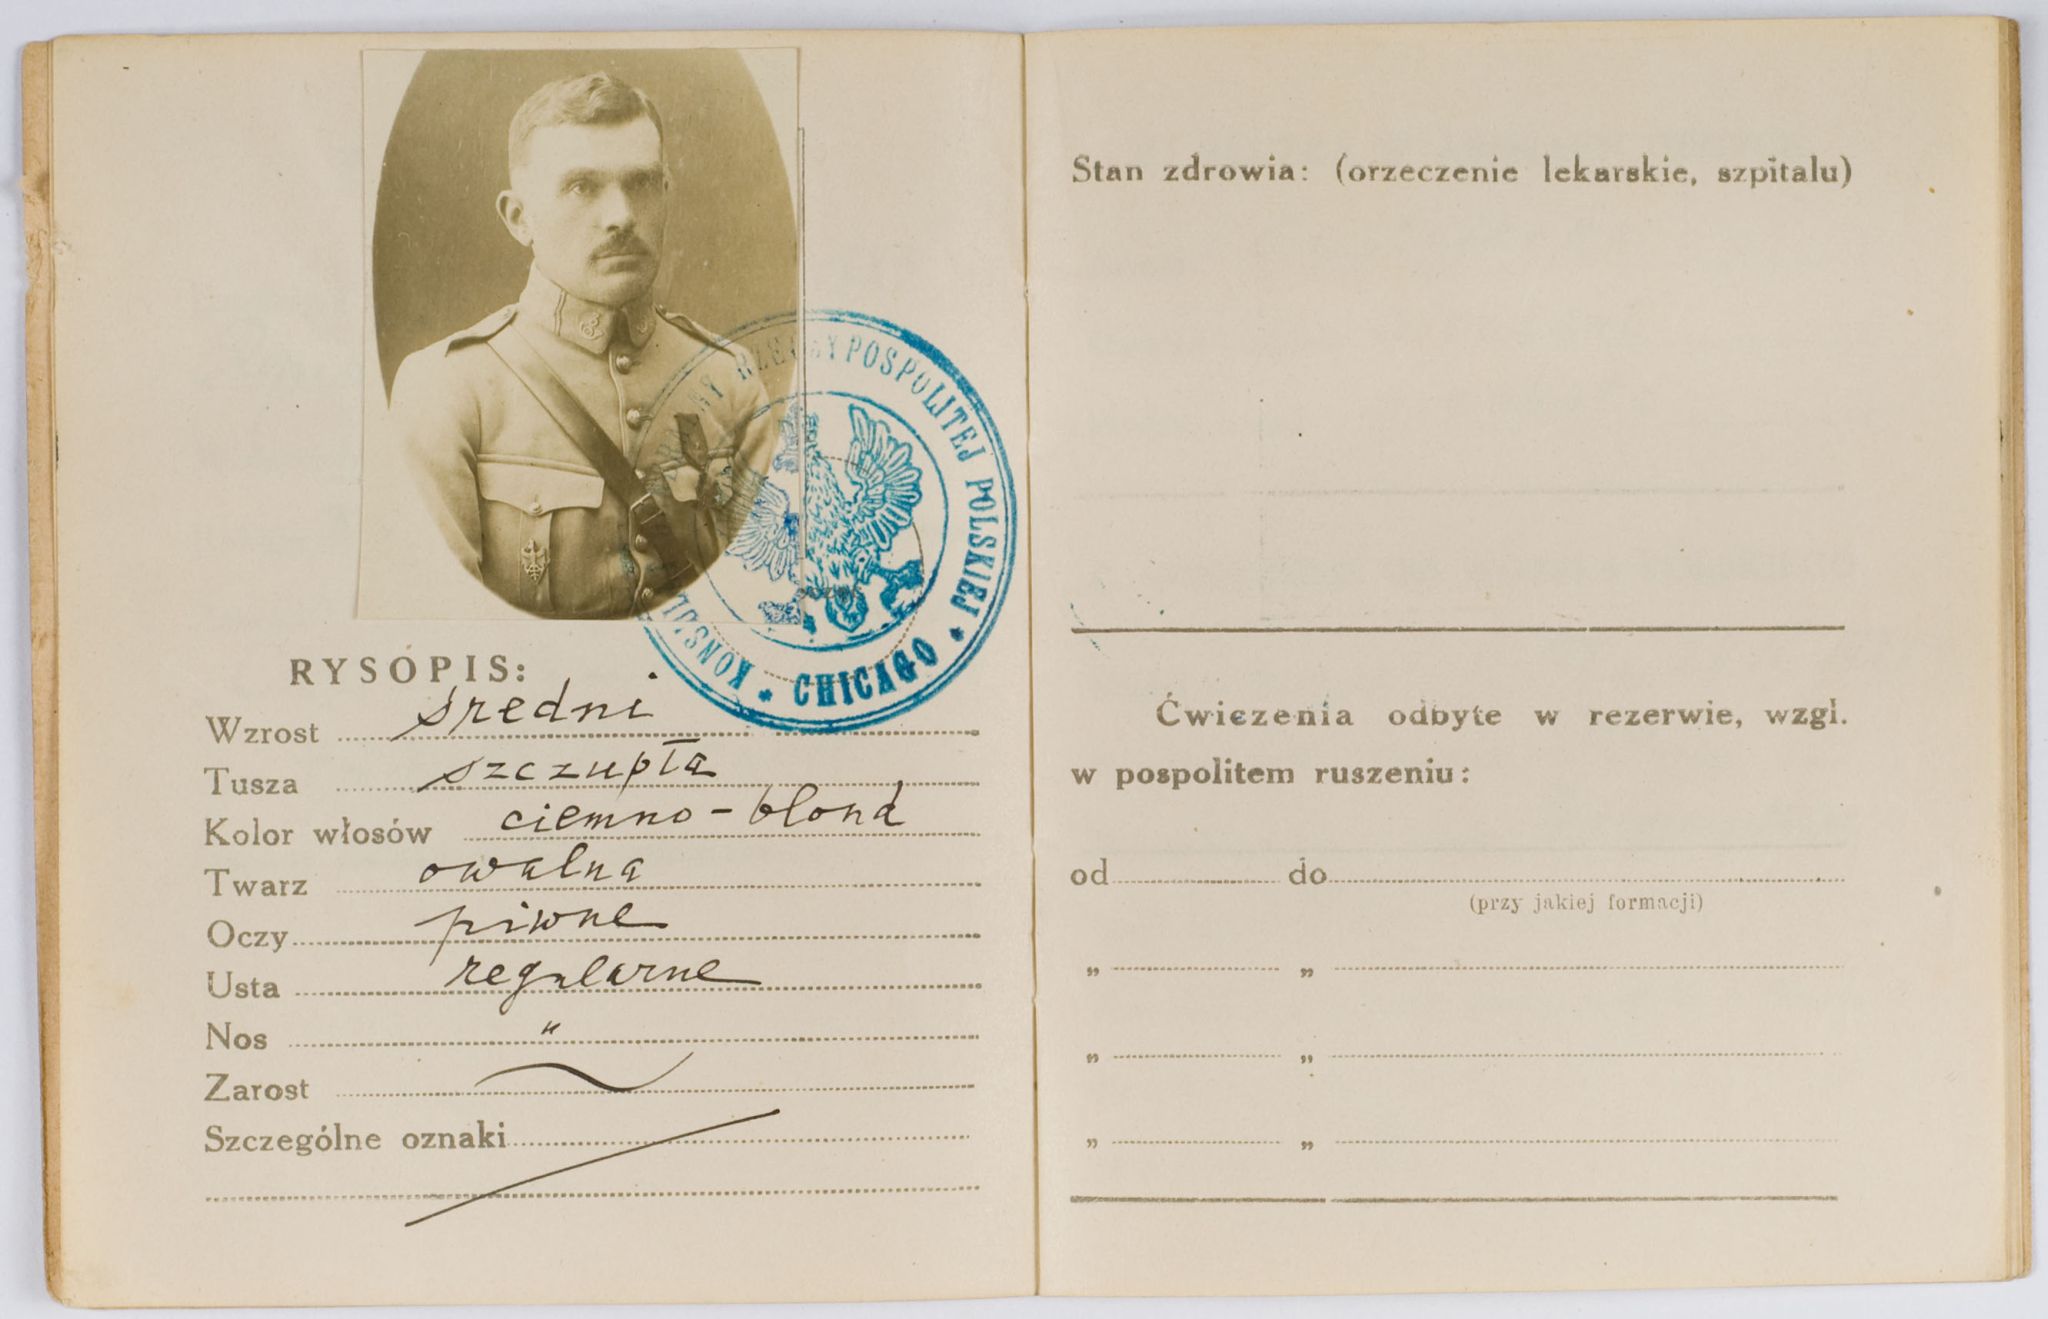 KONSULAT GENERALNY RZECZYPOSPOLITEJ POLSKIEJ
* CHICAGO *
RYSOPIS:
Wzrost średni
Tusza szczupła
Kolor włosów ciemno-blond
Twarz owalna
Oczy piwne
Usta regularne
Nos "
Zarost
Szczególne oznaki
Stan zdrowia: (orzeczenie lekarskie, szpitalu)
Ćwiczenia odbyte w rezerwie, wzgl.
w pospolitem ruszeniu:
od do
(przy jakiej formacji)
„ „
„ „
„ „